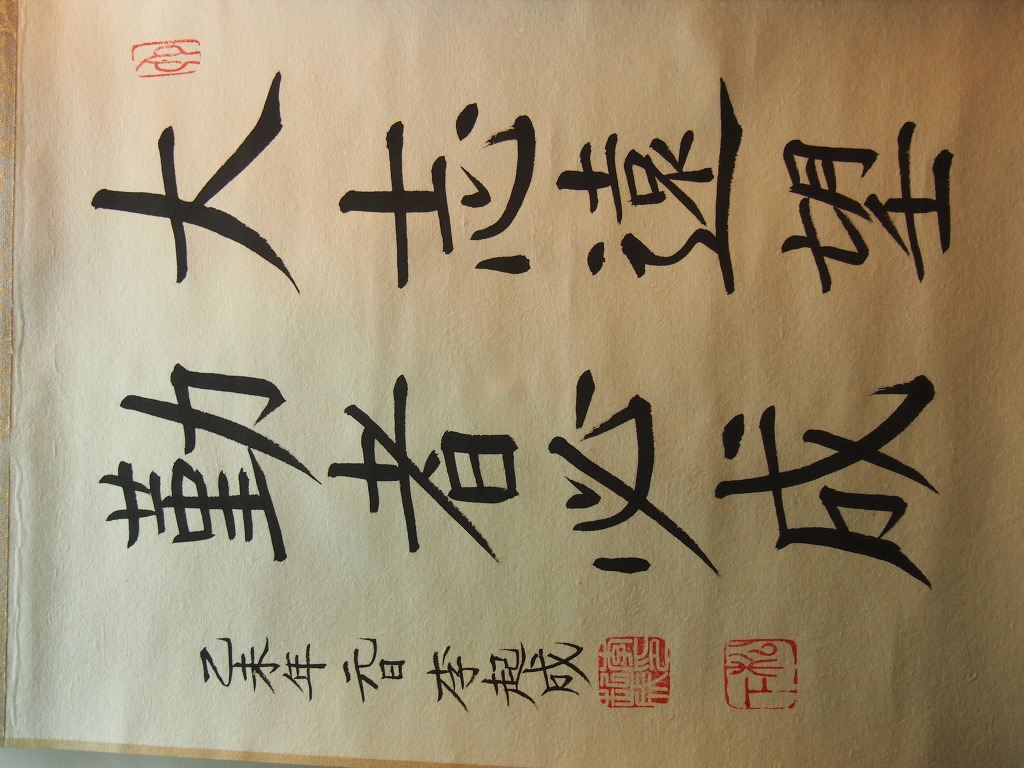 大志遠望
勤者必成
乙未年 元日 李起成